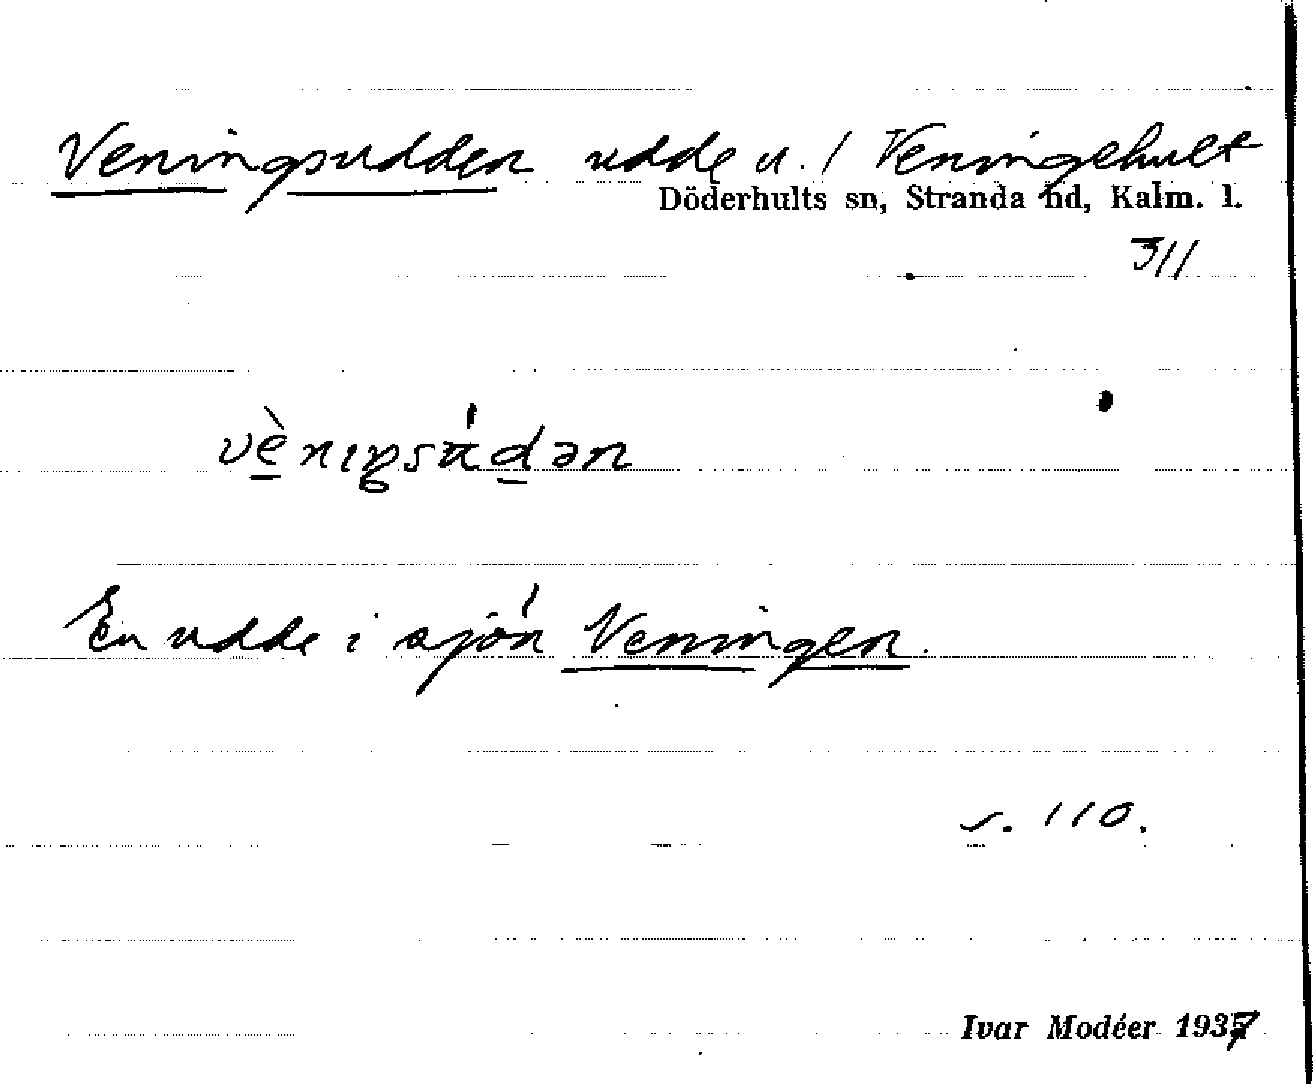 Veningsudden udde u. / Veningehult
Döderhults sn, Stranda hd, Kalm. l.
3/1
vèniŋsúdən
En udde i sjön Veningen.
s. 110.
Ivar Modéer 1937